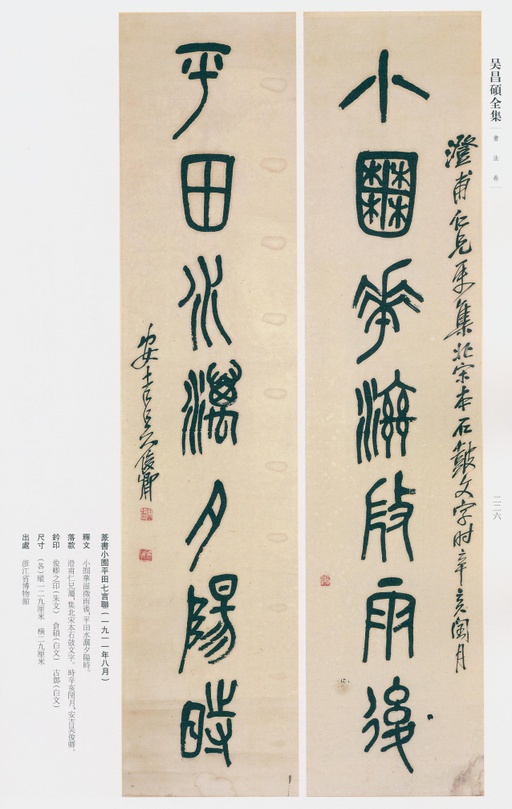 吴昌碩全集
書法卷
二二六
澄甫仁兄屬集北宋本石鼓文字时辛亥閏月
小囿華滋微雨後
平田水澫夕陽時
安吉吴俊卿
篆書小囿平田七言聯（一九一一年八月）
釋文 小囿華滋微雨後，平田水澫夕陽時。
落款 澄甫仁兄屬，集北宋本石鼓文字。時辛亥閏月，安吉吴俊卿。
鈐印 俊卿之印（朱文） 倉碩（白文） 古鄣（白文）
尺寸 （各）縱一二九厘米 橫二九厘米
出處 浙江省博物館